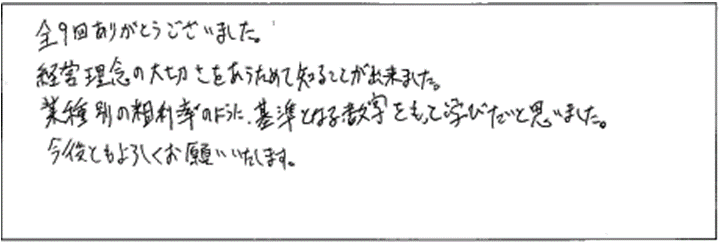 全9回ありがとうございました。
経営理念の大切さをあらためて知ることが出来ました。
業種別の粗利率のように、基準となる数字をもっと学びたいと思いました。
今後ともよろしくお願いいたします。